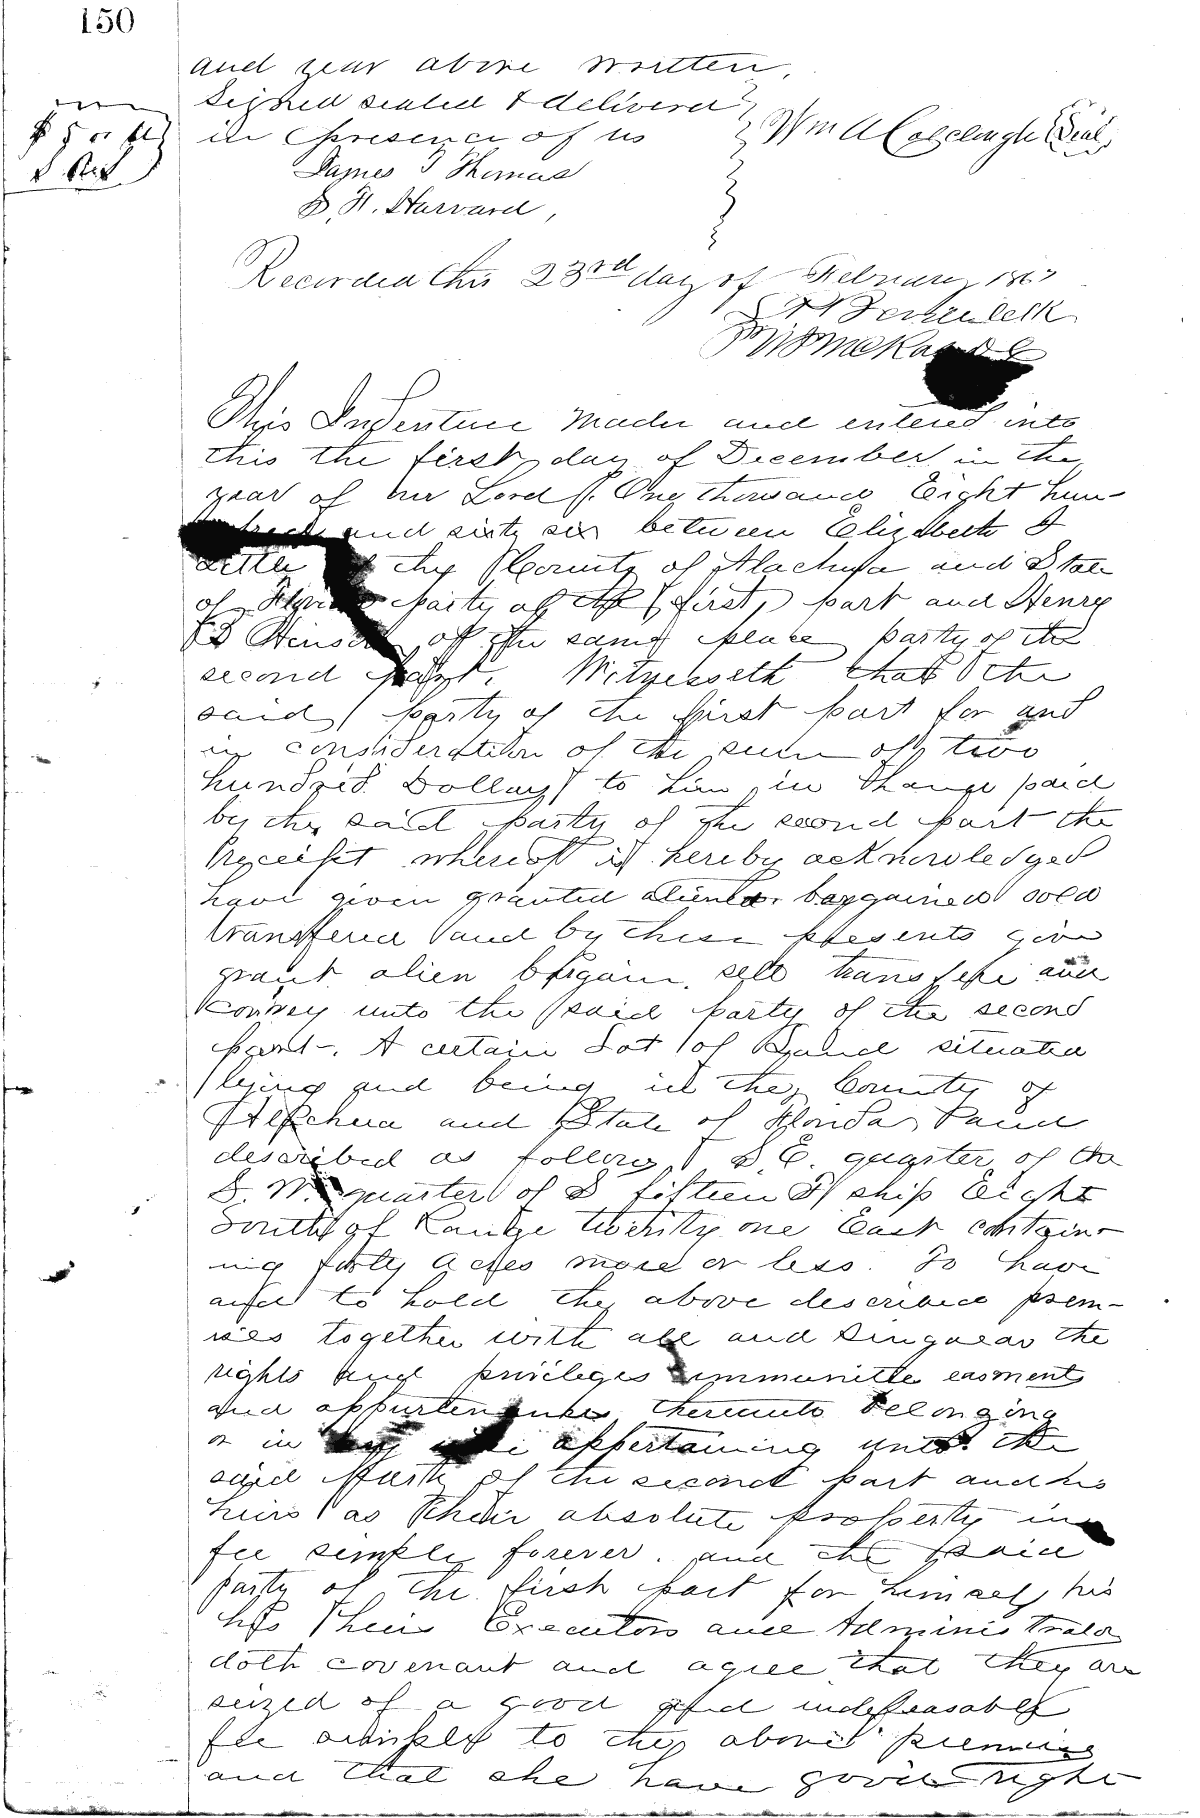 150
and year above written.
Signed sealed & delivered
in presence of us
Wm A Colclough (Seal)
James T Thomas
S. H. Harvard,
Recorded this 23rd day of February 1867
This Indenture made and entered into
this the first day of December in the
year of our Lord One thousand Eight hun-
dred and sixty six between Elizabeth
the County of Alachua and State
of Florida party of the first part and Henry
of the same place party of the
second part. Witnesseth that the
said party of the first part for and
in consideration of the sum of two
hundred Dollars to him in paid
by the said party of the second part the
receipt whereof is hereby acknowledged
have given granted aliened bargained sold
transfered and by these presents give
grant alien bargain sell transfere and
convey unto the said party of the second
part. A certain Lot of Land situated
lying and being in the County of
Alachua and State of Florida, and
described as follows S.E. quarter of the
S. W. quarter of S fifteen T ship Eight
South of Range twenty one East contain-
ing forty acres more or less. To have
and to hold the above described prem-
ises together with all and singular the
rights and privileges immunitte easments
and appurtenances thereunto belonging
or in any wise appertaining unto the
said party of the second part and his
heirs as their absolute property in
fee simple forever. and the said
party of the first part for himself his
his heirs Executors and Administrator
doth covenant and agree that they are
seized of a good and indefeasable
fee simple to the above premises
and that she have good right